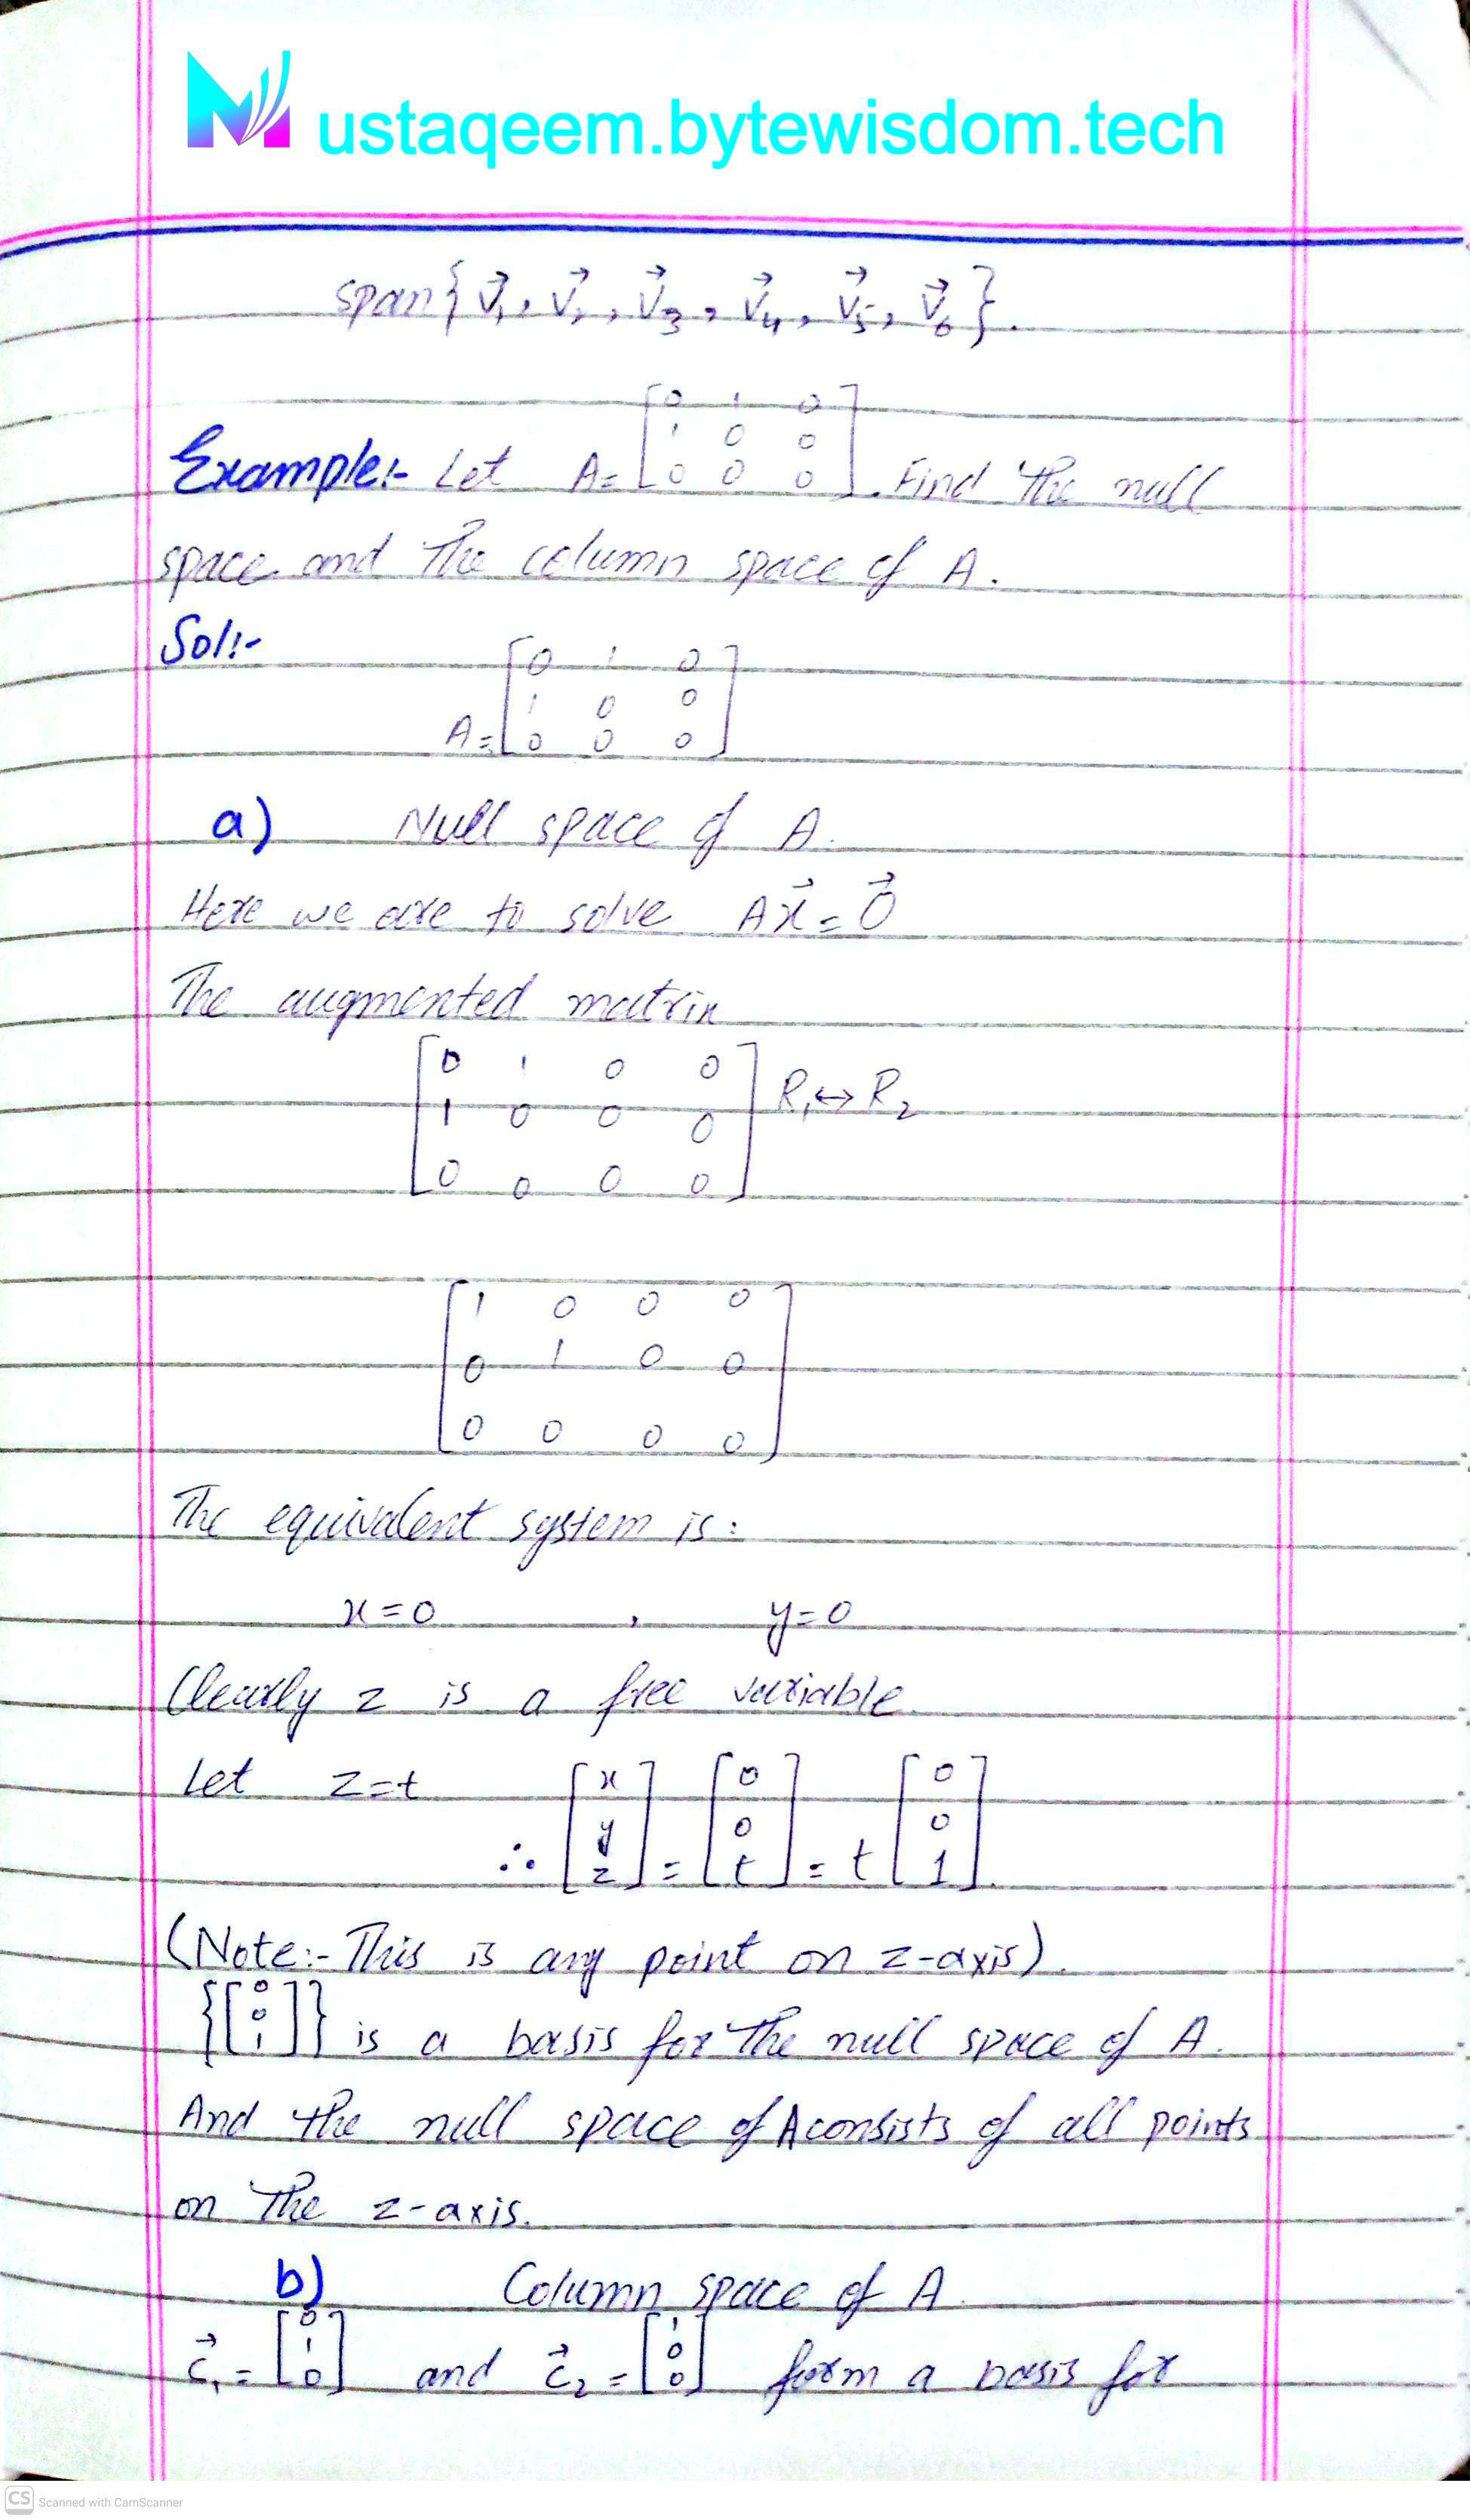 Mustaqeem.bytewisdom.tech
span{v⃗₁, v⃗₂, v⃗₃, v⃗₄, v⃗₅, v⃗₆}.
Example:- Let A= [0 1 0; 1 0 0; 0 0 0]. Find the null
space and the column space of A.
Sol:-
A= [0 1 0; 1 0 0; 0 0 0]
a) Null space of A.
Here we are to solve Ax⃗ = 0⃗
The augmented matrix
[0 1 0 0; 1 0 0 0; 0 0 0 0] R₁↔R₂
[1 0 0 0; 0 1 0 0; 0 0 0 0]
The equivalent system is:
x=0 , y=0
Clearly z is a free variable.
Let z=t
∴ [x; y; z] = [0; 0; t] = t[0; 0; 1].
(Note:- This is any point on z-axis).
{[0; 0; 1]} is a basis for the null space of A.
And the null space of A consists of all points
on the z-axis.
b) Column space of A.
c⃗₁ = [0; 1; 0] and c⃗₂ = [1; 0; 0] form a basis for
CS Scanned with CamScanner